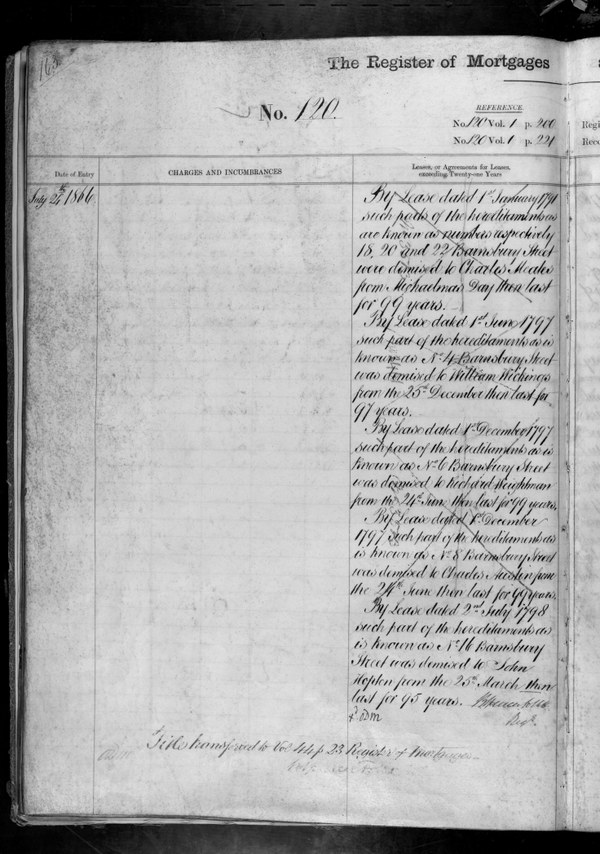 163
The Register of Mortgages
No. 120.
REFERENCE
No. 120 Vol. 1 p. 200
No. 120 Vol. 1 p. 221
Regi
Reco
Date of Entry
CHARGES AND INCUMBRANCES
Leases, or Agreements for Leases,
exceeding Twenty-one Years
July 24th 1866
By Lease dated 1st January 1791
such parts of the hereditaments as
are known as numbers respectively
18, 20 and 22 Barnsbury Street
were demised to Charles
from Michaelmas Day then last
for 99 years.
By Lease dated 1st June 1797
such part of the hereditaments as is
known as No. 4 Barnsbury Street
was demised to William
from the 25th December then last for
97 years.
By Lease dated 1st December 1797
such part of the hereditaments as is
known as No. 6 Barnsbury Street
was demised to Richard Weightman
from the 24th June then last for 99 years.
By Lease dated 1st December
1797 such part of the hereditaments as
is known as No. 8 Barnsbury Street
was demised to Charles Austin from
the 24th June then last for 99 years.
By Lease dated 2nd July 1798
such part of the hereditaments as
is known as No. 16 Barnsbury
Street was demised to John
Hopton from the 25th March then
last for 95 years.
Title transferred to Vol. 44 p. 23 Register of Mortgages